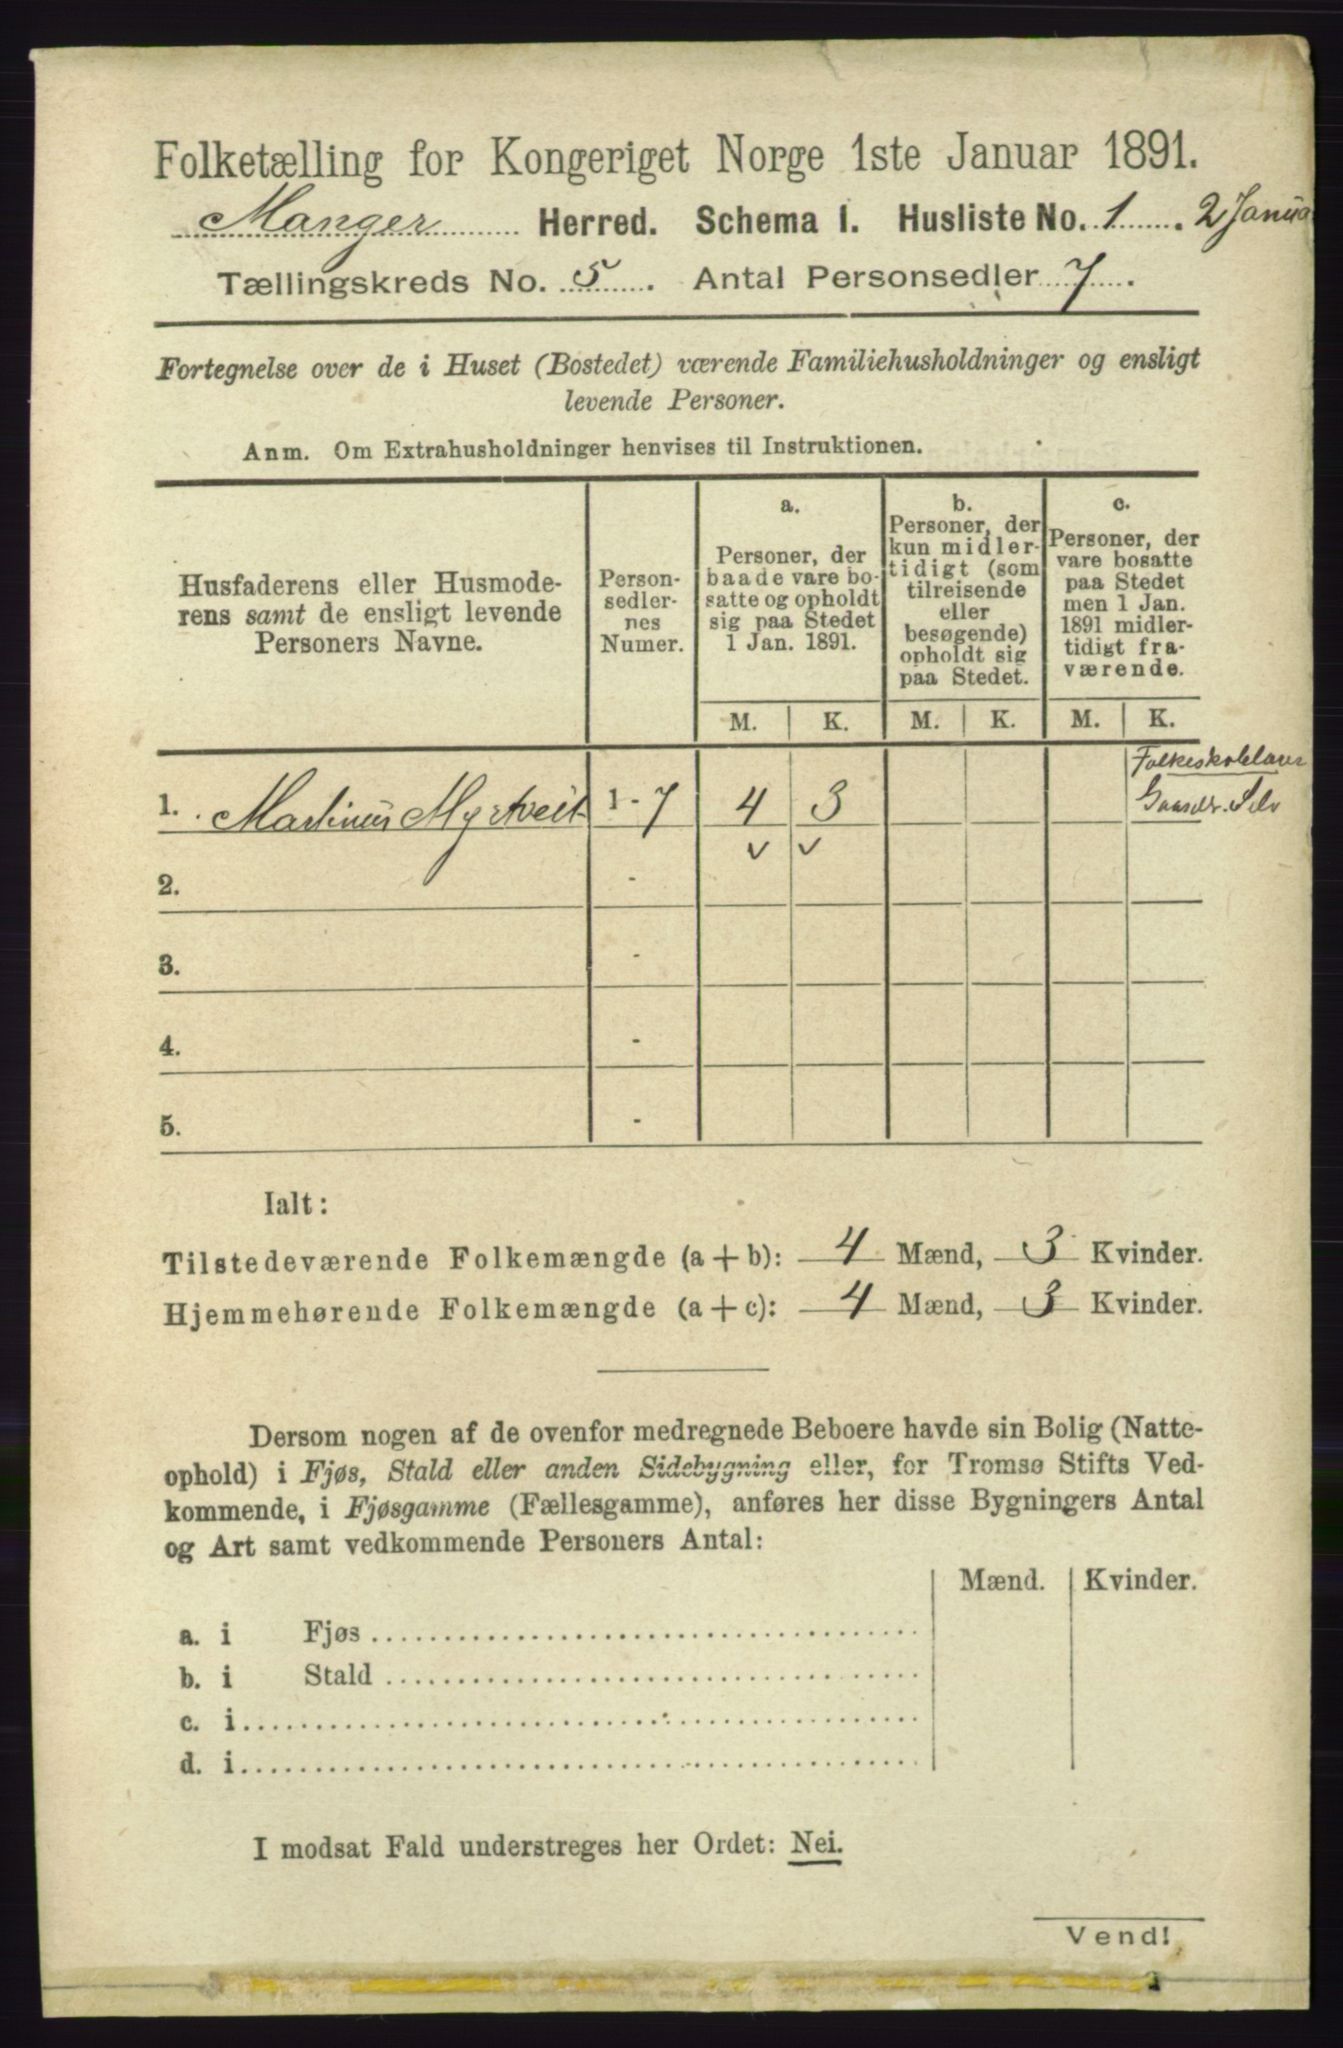 Folketælling for Kongeriget Norge 1ste Januar 1891.
Manger Herred. Schema I. Husliste No. 1. 2 Janua
Tællingskreds No. 5. Antal Personsedler 7.
Fortegnelse over de i Huset (Bostedet) værende Familiehusholdninger og ensligt
levende Personer.
Anm. Om Extrahusholdninger henvises til Instruktionen.
Husfaderens eller Husmode-
rens samt de ensligt levende
Personers Navne.
Person-
sedler-
nes
Numer.
a.
Personer, der
baade vare bo-
satte og opholdt
sig paa Stedet
1 Jan. 1891.
b.
Personer, der
kun midler-
tidigt (som
tilreisende
eller
besøgende)
opholdt sig
paa Stedet.
c.
Personer, der
vare bosatte
paa Stedet
men 1 Jan.
1891 midler-
tidigt fra-
værende.
M. K. M. K. M. K.
1. Martinus Myrtveit 1 - 7 4 3
2. -
3. -
4. -
5. -
Ialt:
Tilstedeværende Folkemængde (a + b): 4 Mænd, 3 Kvinder.
Hjemmehørende Folkemængde (a + c): 4 Mænd, 3 Kvinder.
Dersom nogen af de ovenfor medregnede Beboere havde sin Bolig (Natte-
ophold) i Fjøs, Stald eller anden Sidebygning eller, for Tromsø Stifts Ved-
kommende, i Fjøsgamme (Fællesgamme), anføres her disse Bygningers Antal
og Art samt vedkommende Personers Antal:
Mænd. Kvinder.
a. i Fjøs
b. i Stald
c. i
d. i
I modsat Fald understreges her Ordet: Nei.
Vend!